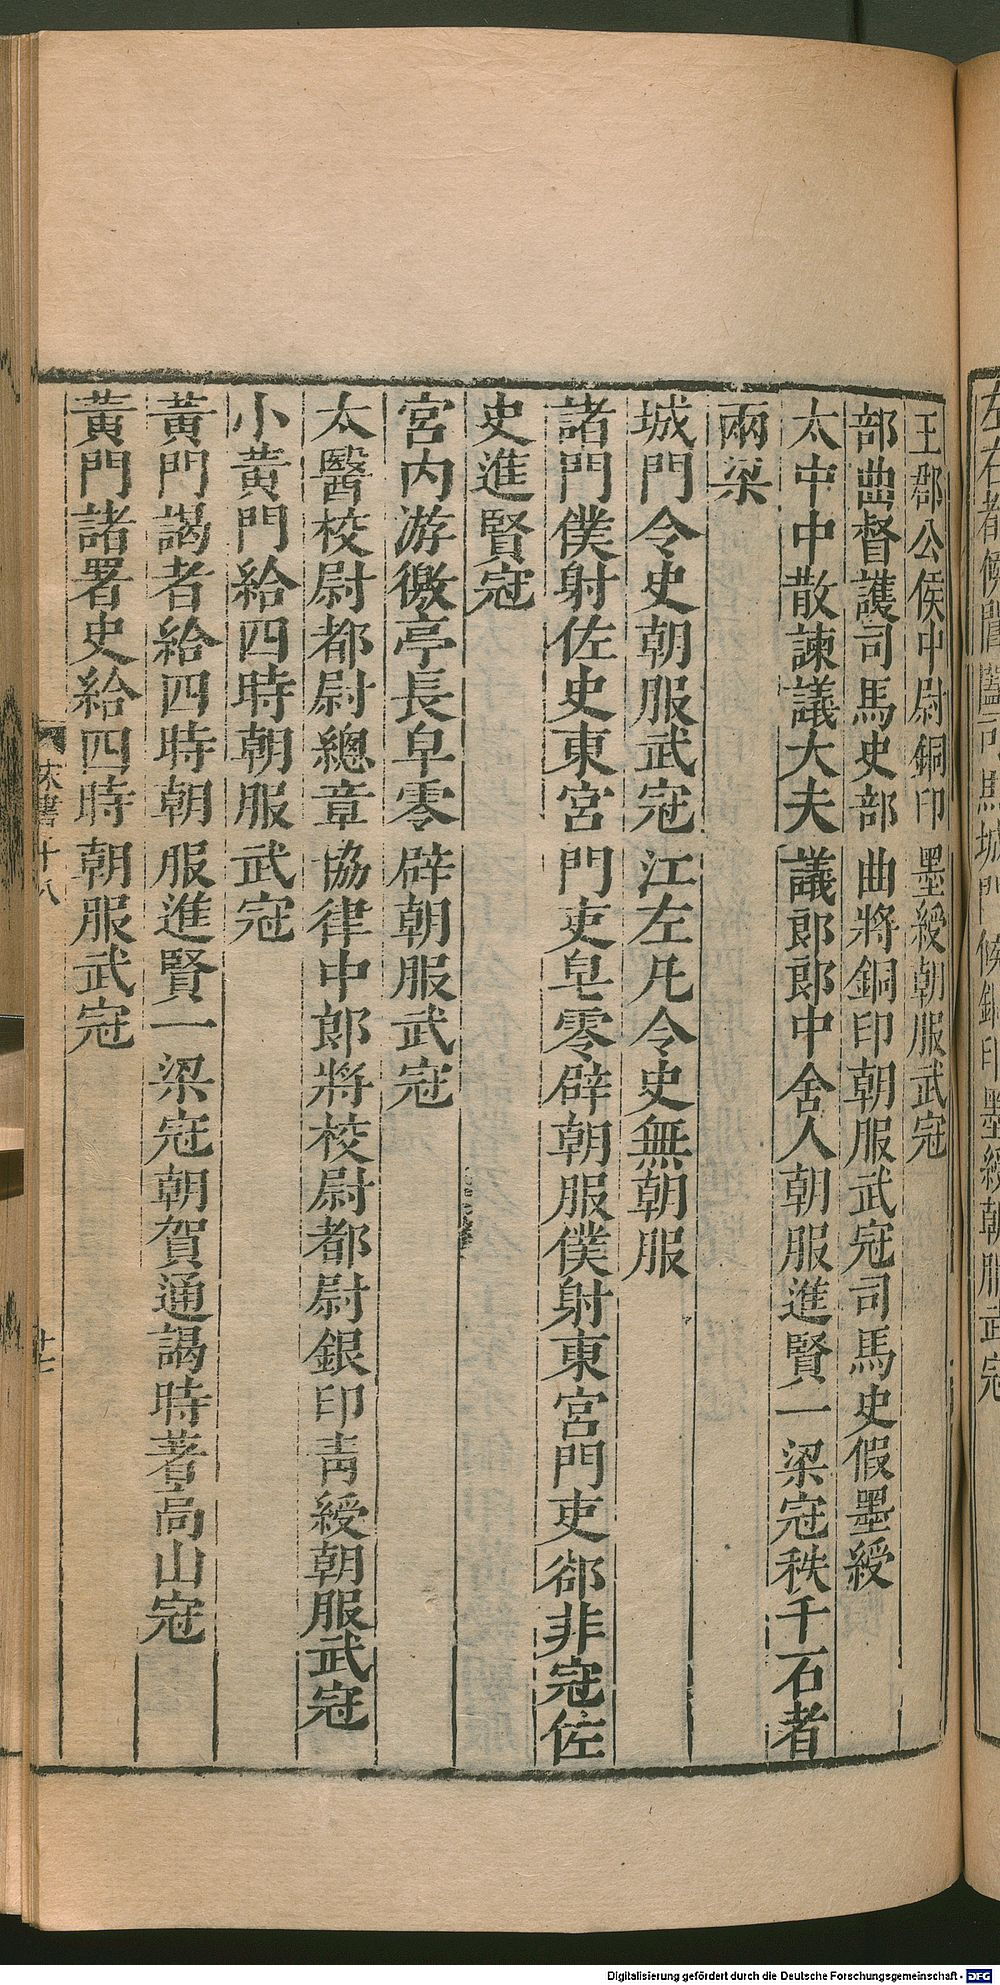 左右都候閶闔司馬城門候銅印墨綬朝服武冠
王郡公侯中尉銅印墨綬朝服武冠
部曲督護司馬史部曲將銅印朝服武冠司馬史假墨綬
太中中散諫議大夫議郎郎中舍人朝服進賢一梁冠秩千石者
兩梁
城門令史朝服武冠江左凡令史無朝服
諸門僕射佐史東宮門吏皁零辟朝服僕射東宮門吏郤非冠佐
史進賢冠
宮內游徼亭長皁零辟朝服武冠
太醫校尉都尉總章協律中郎將校尉都尉銀印青綬朝服武冠
小黃門給四時朝服武冠
黃門謁者給四時朝服進賢一梁冠朝賀通謁時著高山冠
黃門諸署史給四時朝服武冠
宋書十八
十七
Digitalisierung gefördert durch die Deutsche Forschungsgemeinschaft - DFG